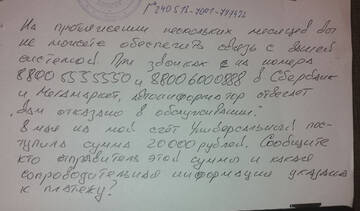 На протяжении нескольких месяцев вы
не можете обеспечить связь с вашей
системой. При звонках с на номера
88005555550 и 88006000888 в Сбербанк
и Мегамаркет, автоинформатор отвечает
"Вам отказано в обслуживании."
В мае на мой счёт Универсальный пос-
тупила сумма 20000 рублей. Сообщите
кто отправитель этой суммы и какая
сопроводительная информация указана
к платежу?